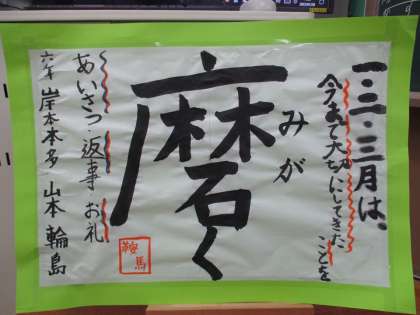 一・二・三月は、
今まで大切にしてきたことを
みが
磨く
あいさつ・返事・お礼
六年 岸本本多 山本輪島
鞍馬